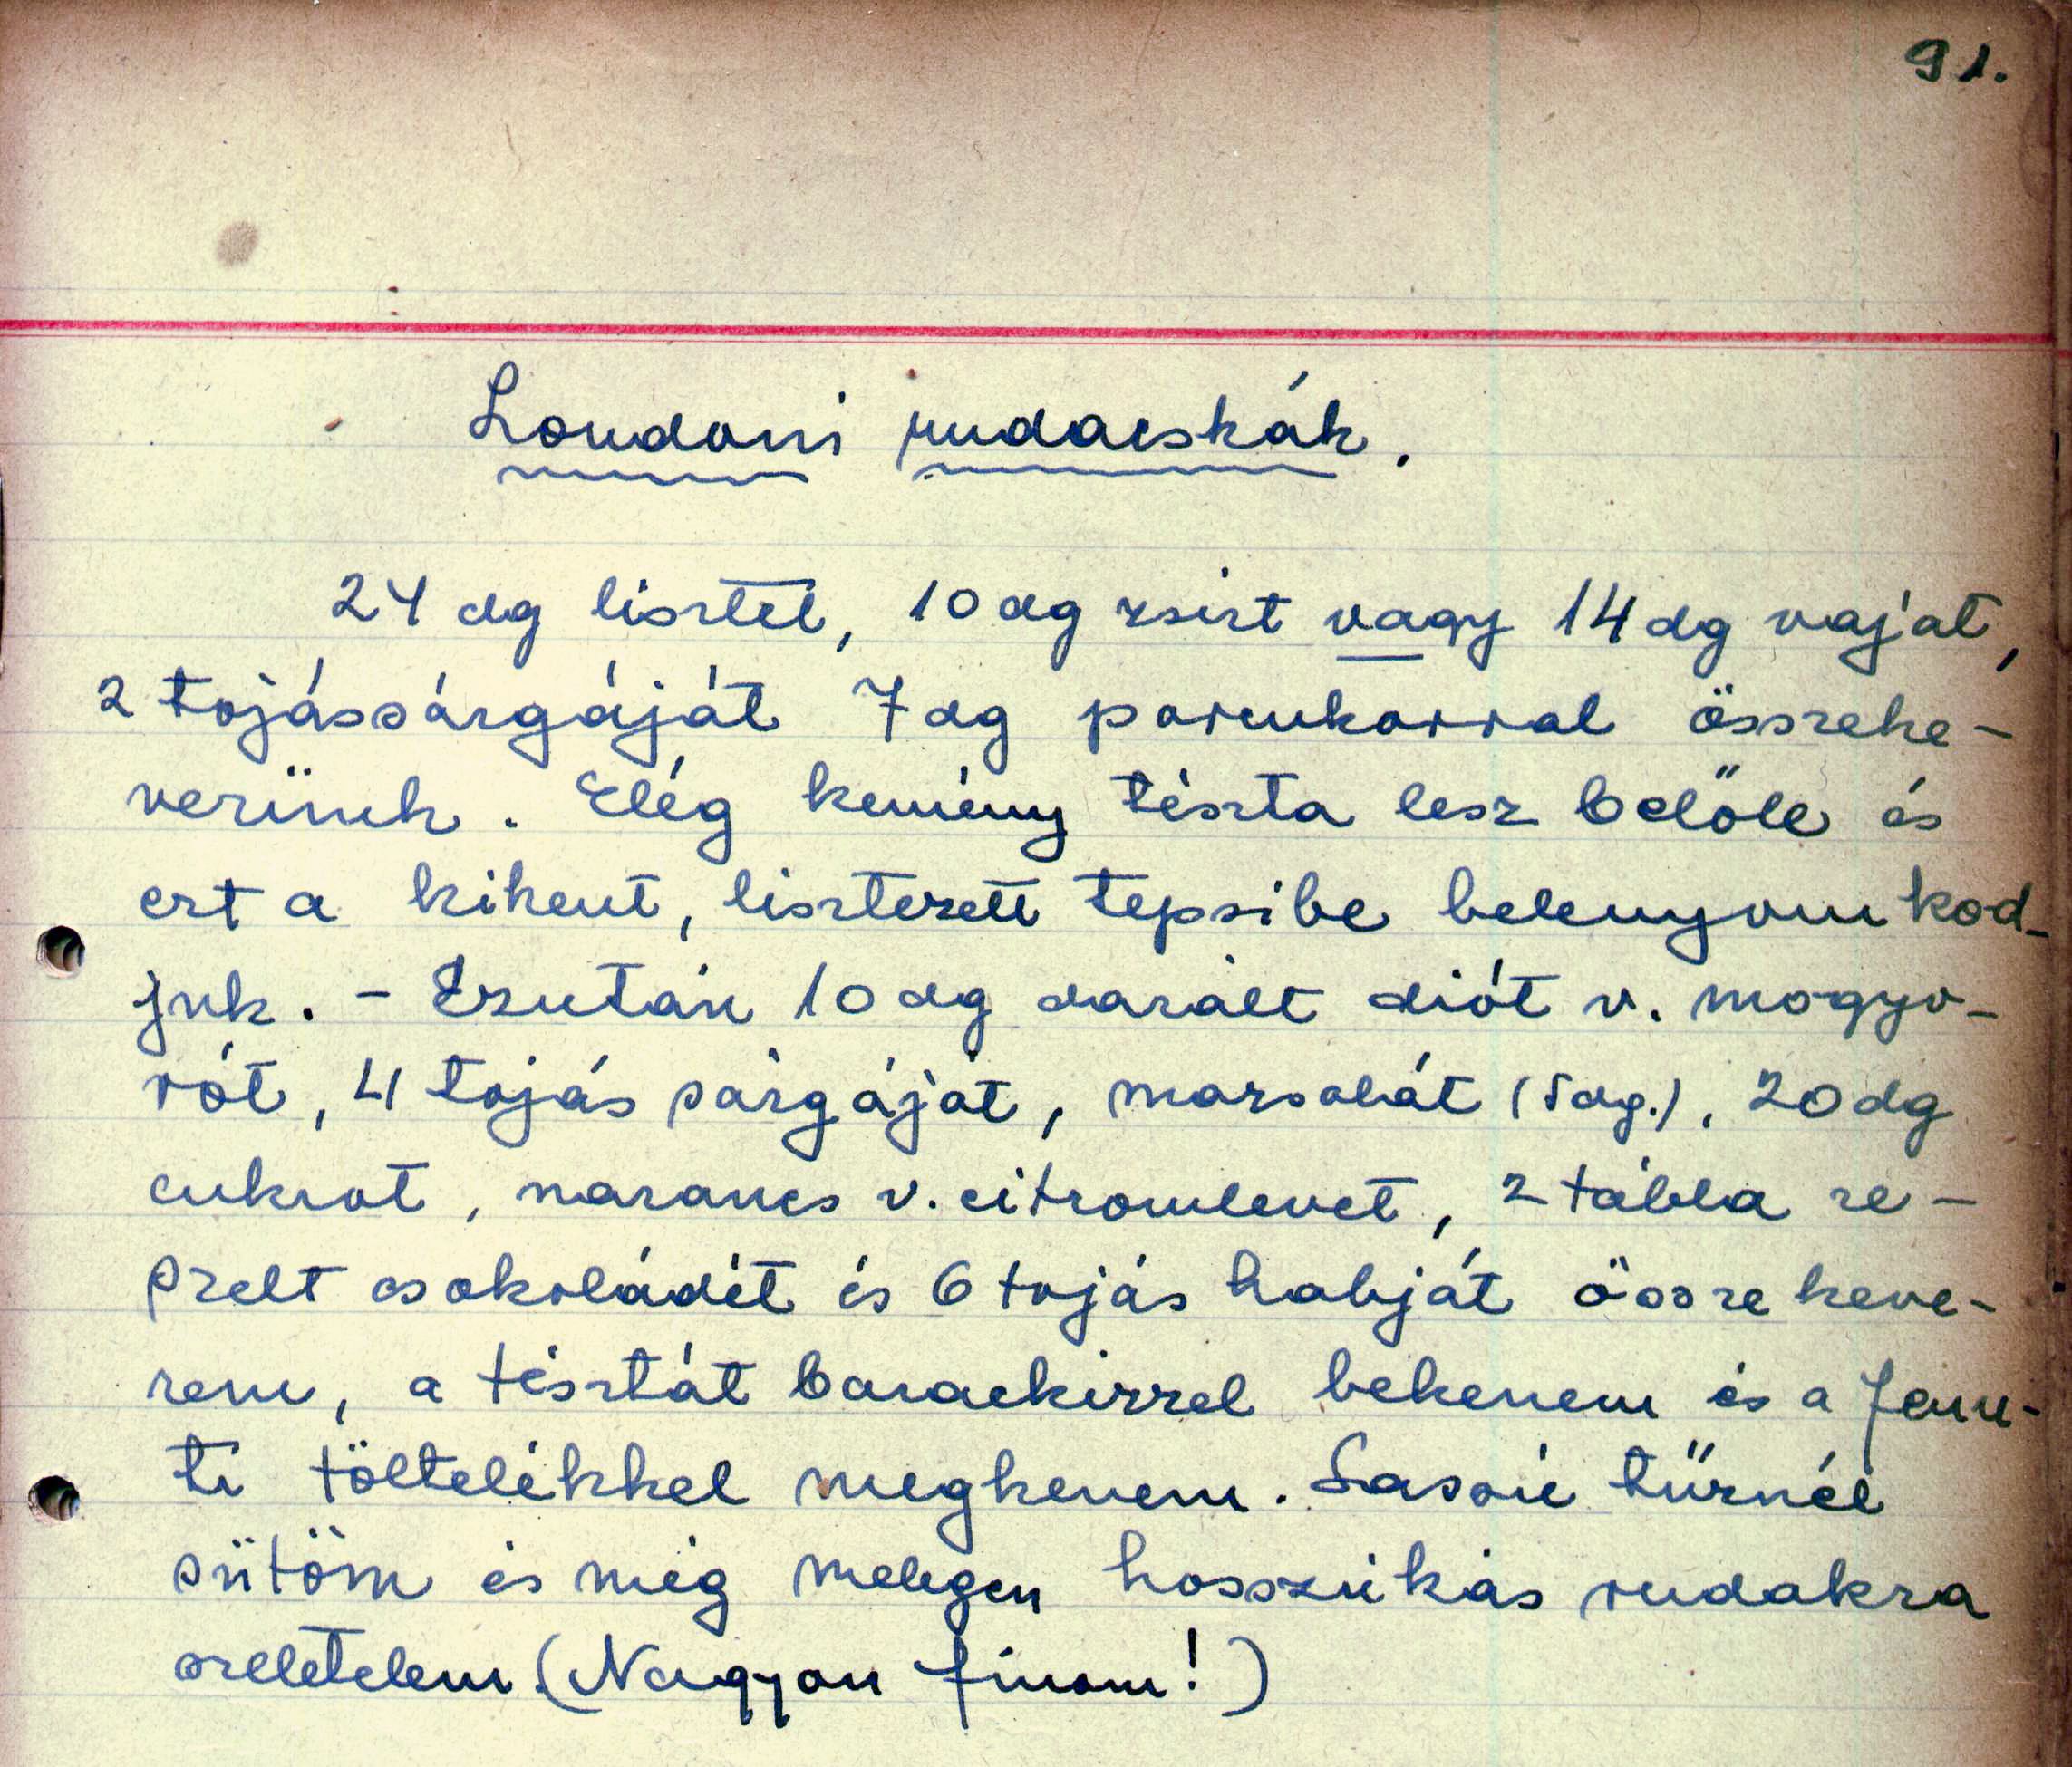 91.
Londoni rudacskák.
24 dg lisztet, 10 dg zsirt vagy 14 dg vajat,
2 tojássárgáját 7 dg porcukorral összeke-
verünk. Elég kemény tészta lesz belőle és
ezt a kikent, lisztezett tepsibe belenyomkod-
juk. - Ezután 10 dg darált diót v. mogyo-
rót, 4 tojás sárgáját, mazsolát (5 dg.), 20 dg
cukrot, narancs v. citromlevet, 2 tábla re-
szelt csokoládét és 6 tojás habját össze keve-
rem, a tésztát barackizzel bekenem és a fenn-
ti töltelékkel megkenem. Lassú tűznél
sütöm és még melegen hosszúkás rudakra
szeletelem. (Nagyon finom!)